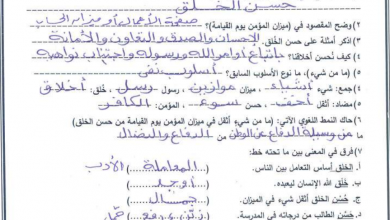 حسن الخلق
٢) وضح المقصود في (ميزان المؤمن يوم القيامة)؟ صحيفة الأعمال أو ميزان الحساب
٣) اذكر أمثلة على حسن الخلق. الإحسان والصدق والتعاون والأمانة
٤) كيف تُحسن أخلاقنا؟ بإتباع أوامر الله ورسوله واجتناب نواهيه
٥) (ما من شيء)، ما نوع الأسلوب السابق؟ أسلوب نفي
٦) جمع: شيء أشياء، ميزان موازين، رسول رسل، خُلق: أخلاق
٧) مضاد: أثقل أخف، حسن سوء، المؤمن: الكافر
٨) حاكِ النمط اللغوي الآتي: (ما من شيء أثقل في ميزان المؤمن يوم القيامة من حسن الخلق)
ما من وسيلة للدفاع عن الوطن من الدفاع والنضال
٧) فرق في المعنى بين ما تحته خط:
أ) الخلق أساس التعامل بين الناس. (المعاملة الأدب)
ب) خلق الله الإنسان ليعبده. (أوجد)
ج) حُسْن الخلق أثقل شيء في الميزان. (جمال)
د) حَسَّن الطالب من درجاته في المدرسة. (زيّن، رفع)